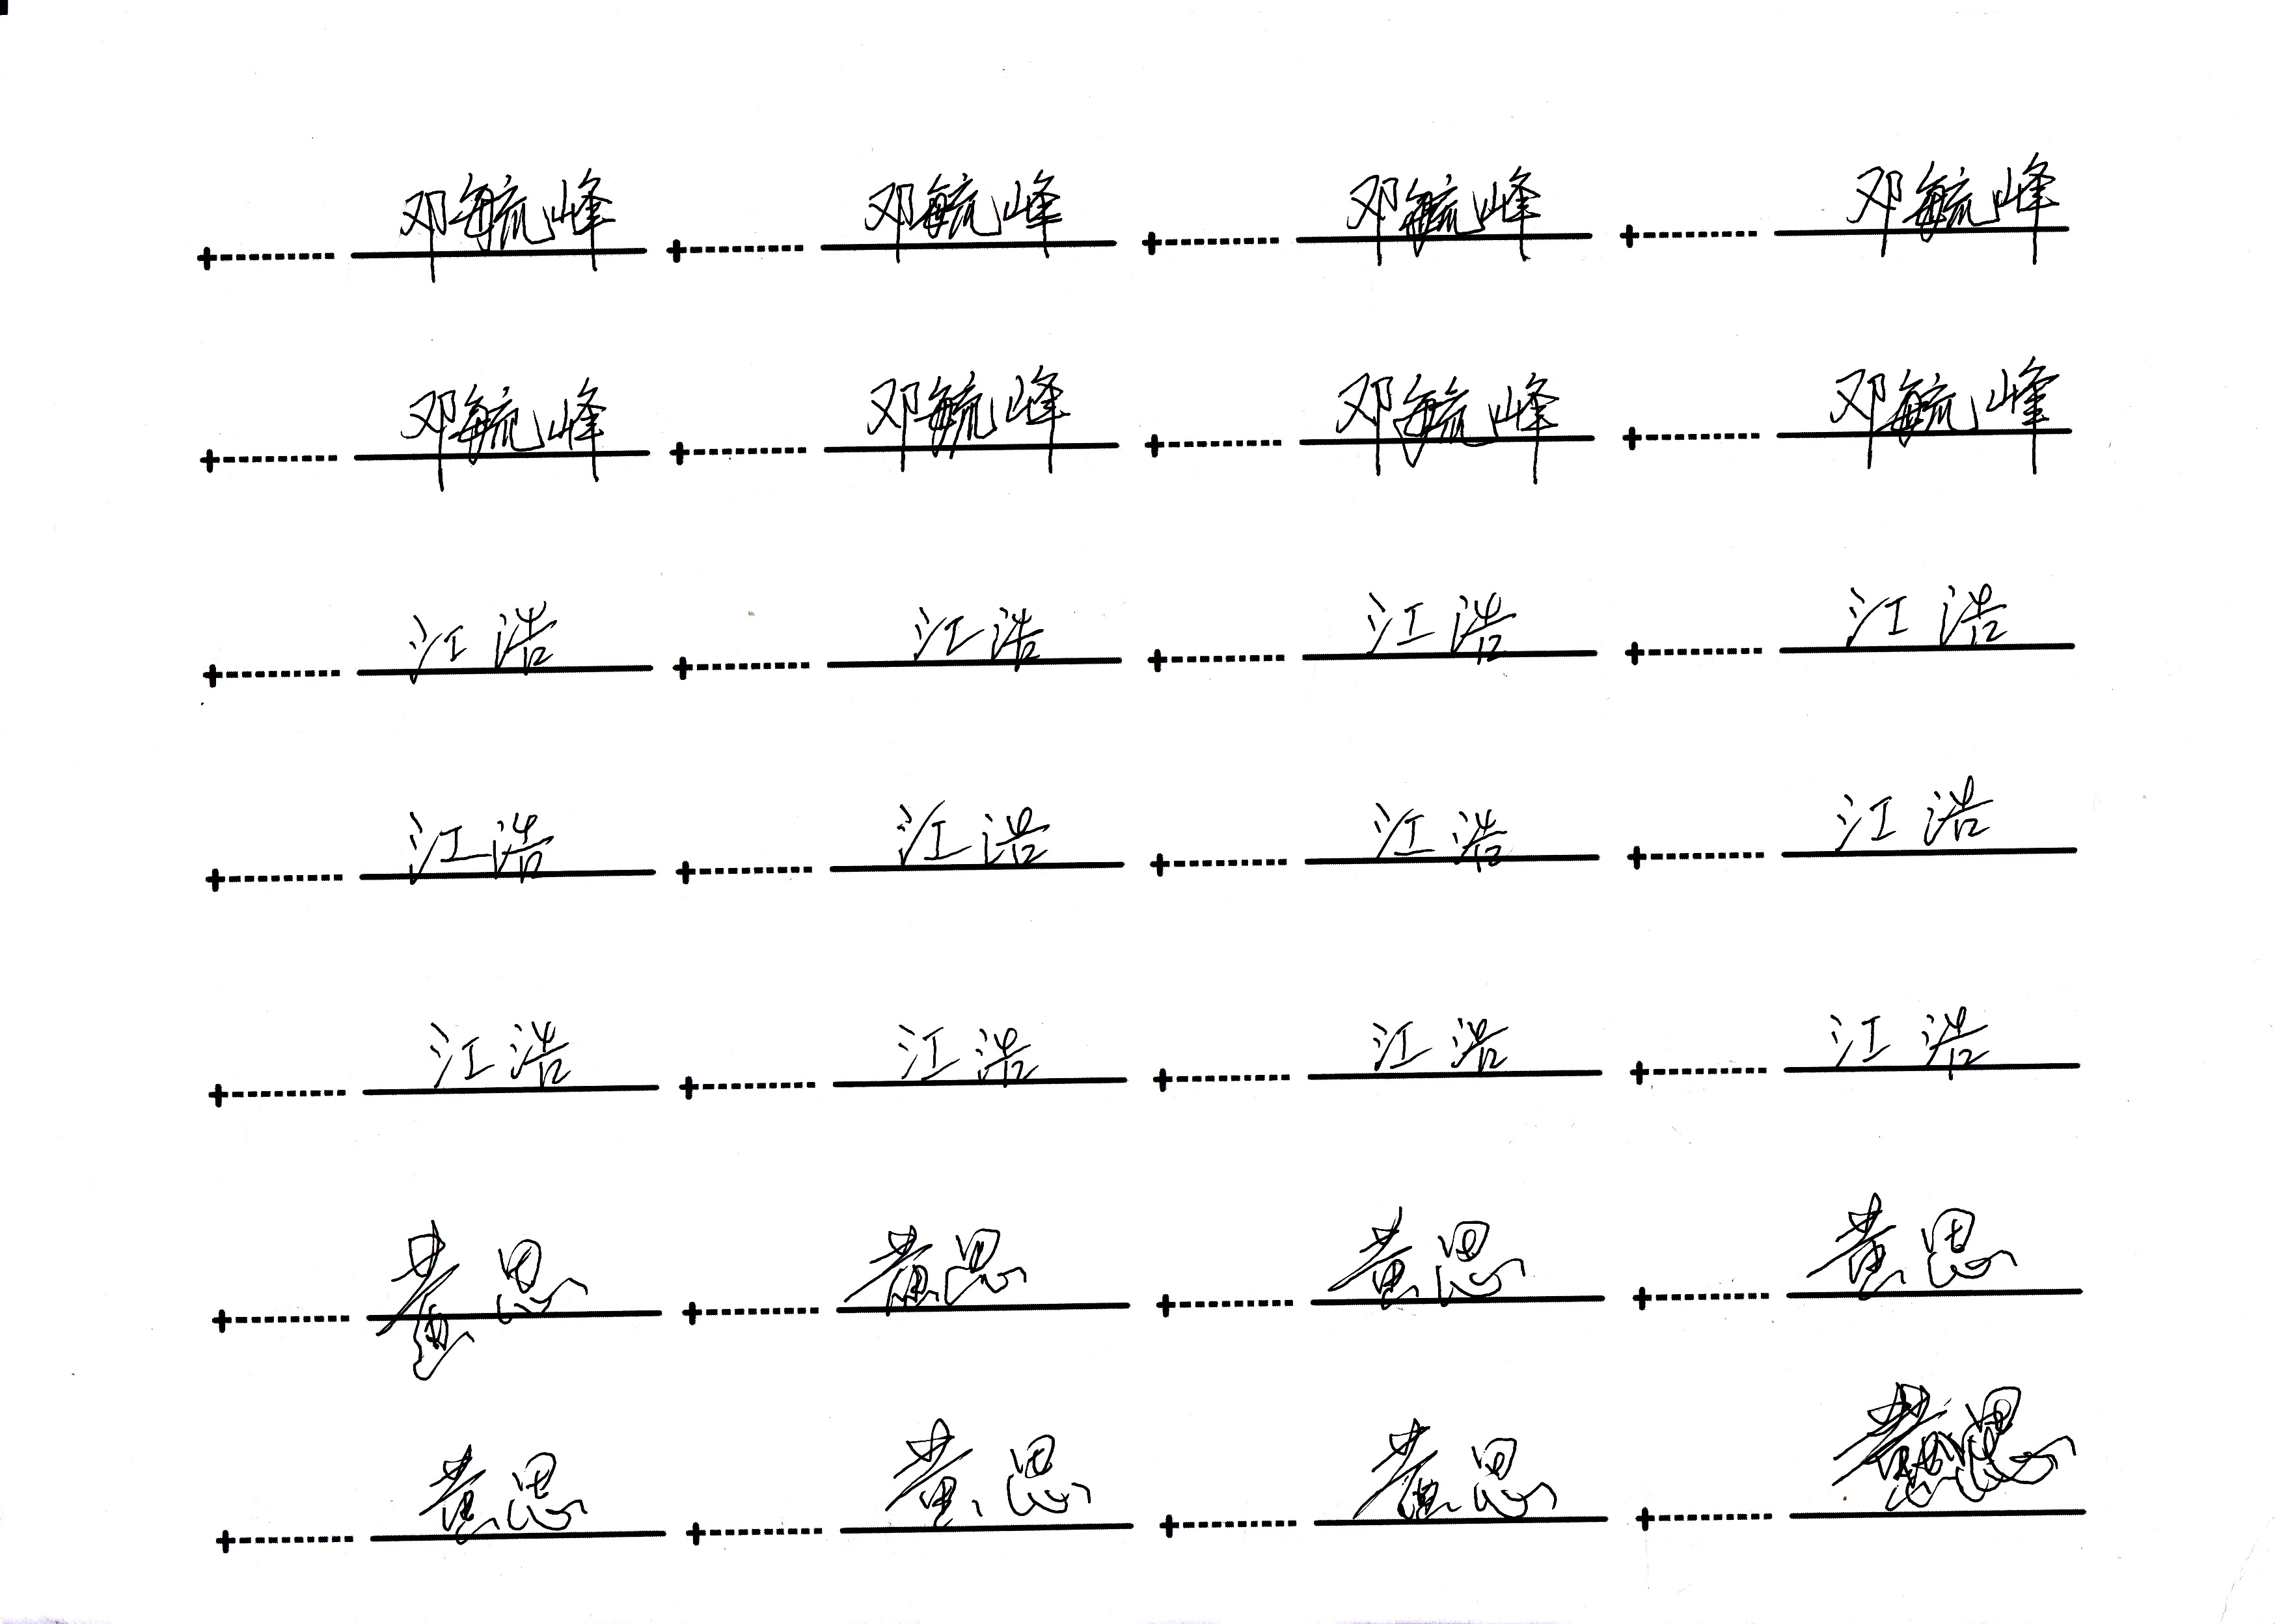 邓毓峰 邓毓峰 邓毓峰 邓毓峰
邓毓峰 邓毓峰 邓毓峰 邓毓峰
江浩 江浩 江浩 江浩
江浩 江浩 江浩 江浩
江浩 江浩 江浩 江浩
黄思 黄思 黄思 黄思
黄思 黄思 黄思 黄思